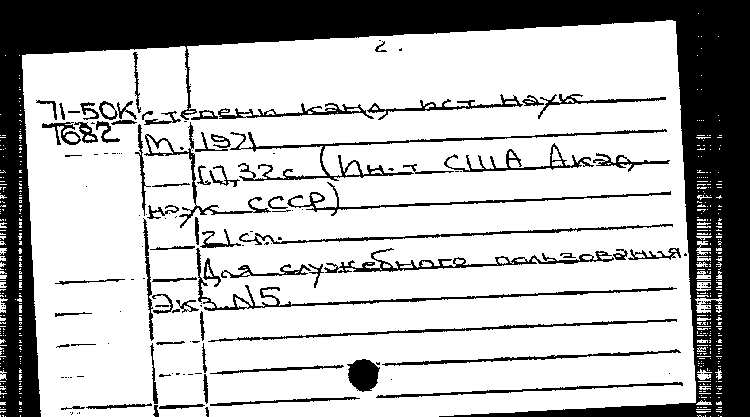 2.
71-50К степени канд. ист. наук
1682 М. 1971
[1], 32 с. (Ин-т США Акад.
наук СССР)
21 см.
Для служебного пользования.
Экз. N 5.